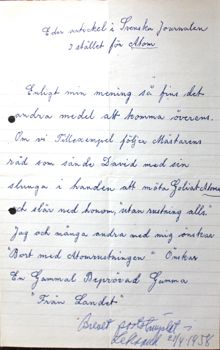 Eder artickel i Svenska Journalen
I stället för Atom
Enligt min mening så fins det
andra medel att komma överens.
Om vi Tillexempel följer Mästarens
råd som sände David med sin
slunga i handen att möta Goliat
och slår ned honom "utan rustning alls"
Jag och många andra med mig önskar
"Bort med Atomrustningen" Önskar
En Gammal Beprövad Gumma
"Från Landet"
Brevet
21/4 1958